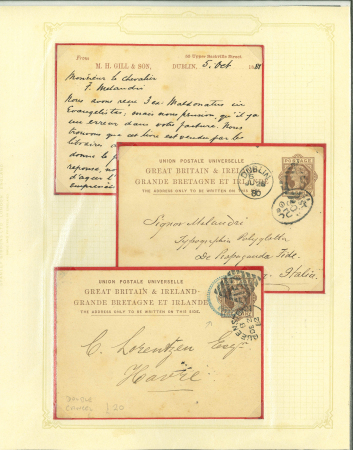 From
50 Upper Sackville Street
M. H. GILL & SON,
DUBLIN, 5. Oct 188
Monsieur le chevalier
F. Melandri
Nous avons recu 3 ex. Maldonatus in
Evangelistes, mais nous pensons qu'il y a
une erreur dans votre facture. Nous
trouvons que cet livre est vendu par les
libraires
donne le
reponse, no
d'agréer
UNION POSTALE UNIVERSELLE
GREAT BRITAIN & IRELAND
GRANDE BRETAGNE ET IRLANDE
THE ADDRESS ONLY TO BE WRITTEN ON THIS SIDE.
POSTAGE
DUBLIN
Signor Melandri
Typographia Polyglotta
De Propaganda Fide
Italia
UNION POSTALE UNIVERSELLE
GREAT BRITAIN & IRELAND
GRANDE BRETAGNE ET IRLANDE
THE ADDRESS ONLY TO BE WRITTEN ON THIS SIDE.
C. Lorentzen Esqr.
Havre